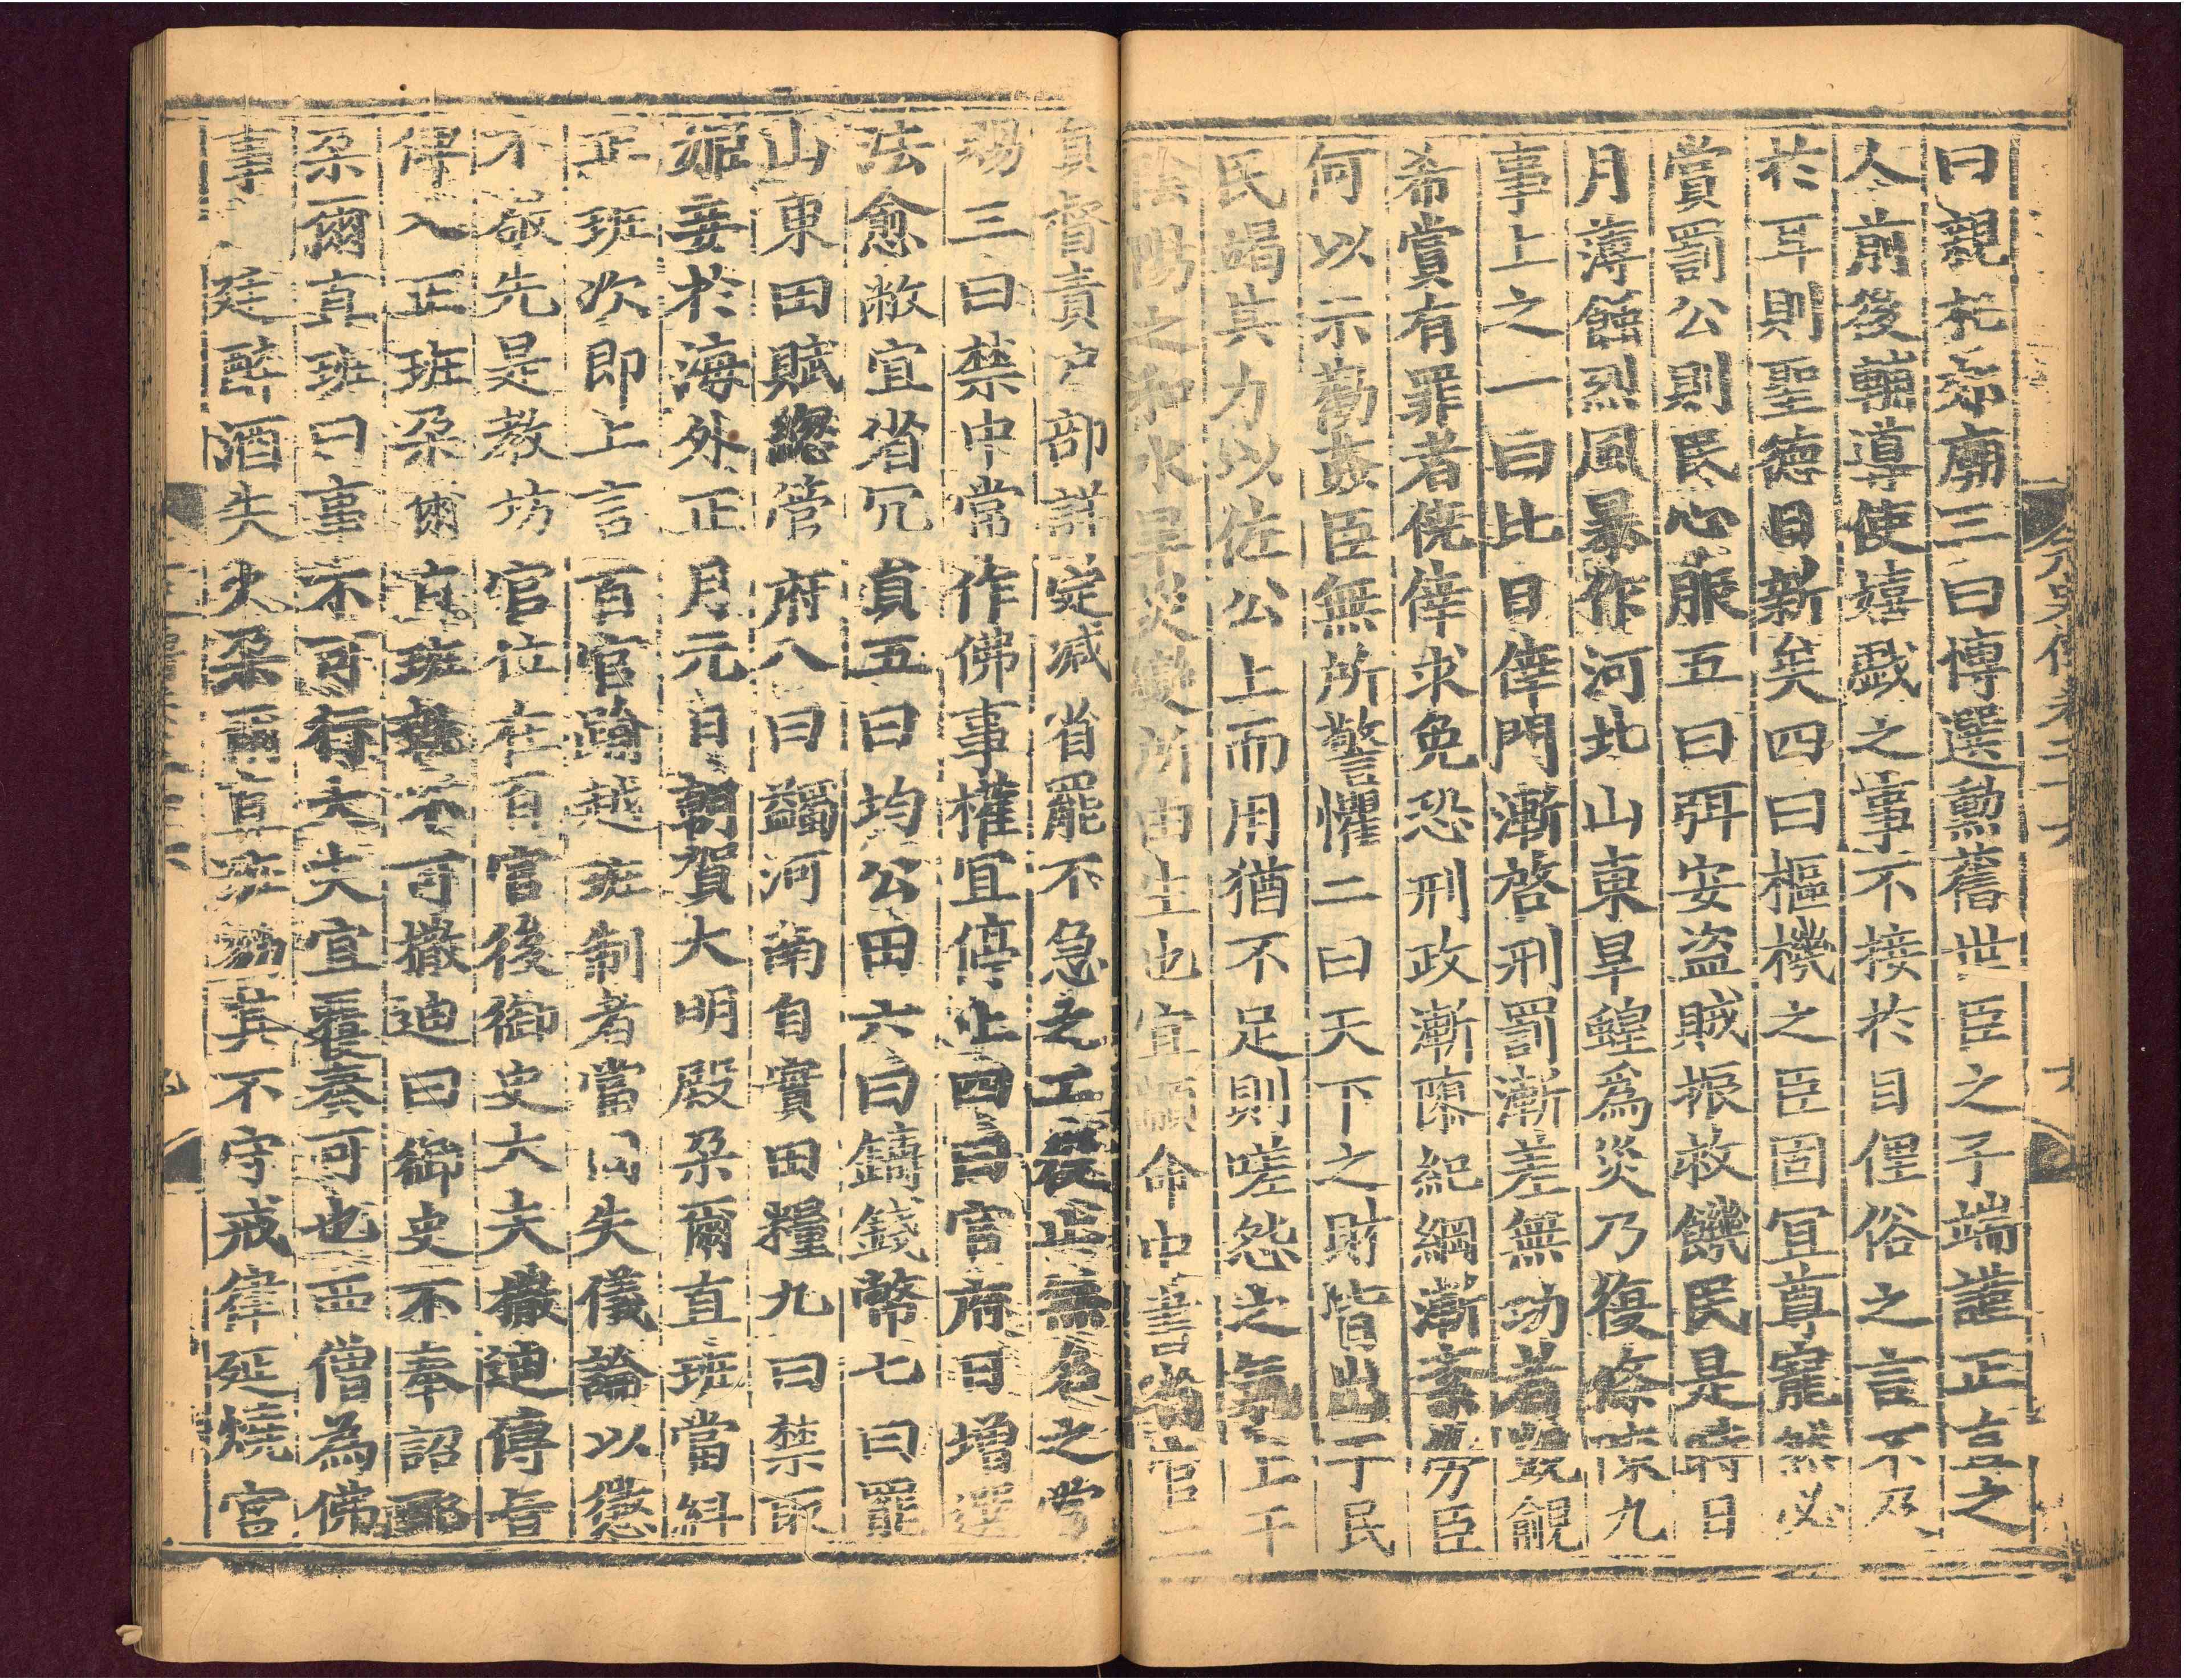 曰親祀宗廟三曰博選勳舊世臣之子端謹正言之
人前後輔導使嬉戲之事不接於目俚俗之言不及
於耳則聖德日新矣四曰樞機之臣固宜尊寵然必
賞罰公則民心服五曰弭安盜賊振救饑民是時日
月薄蝕烈風暴作河北山東旱蝗為災乃復條陳九
事上之一曰比日倖門漸啓刑罰漸差無功者覬覦
希賞有罪者僥倖求免恐刑政漸隳紀綱漸紊勞臣
何以示勸姦臣無所警懼二曰天下之財皆出于民
民竭其力以佐公上而用猶不足則嗟怨之氣上干
陰陽之和水旱災變所由生也宜顓命中書省官二
員督責戶部詳定減省罷不急之工役止無名之賞
賜三曰禁中常作佛事權宜停止四曰官府日增選
法愈敝宜省冗員五曰均公田六曰鑄錢幣七曰罷
山東田賦總管府八曰蠲河南自實田糧九曰禁取
姬妾於海外正月元日朝賀大明殿朵爾直班當糾
正班次即上言百官踰越班制者當同失儀論以懲
不敬先是教坊官位在百官後御史大夫撒迪傳旨
俾入正班朵爾直班執不可撒迪曰御史不奉詔耶
朵爾直班曰事不可行大夫宜覆奏可也西僧為佛
事 廷醉酒失火朵爾直班劾其不守戒律延燒宮
元史傳卷二十六